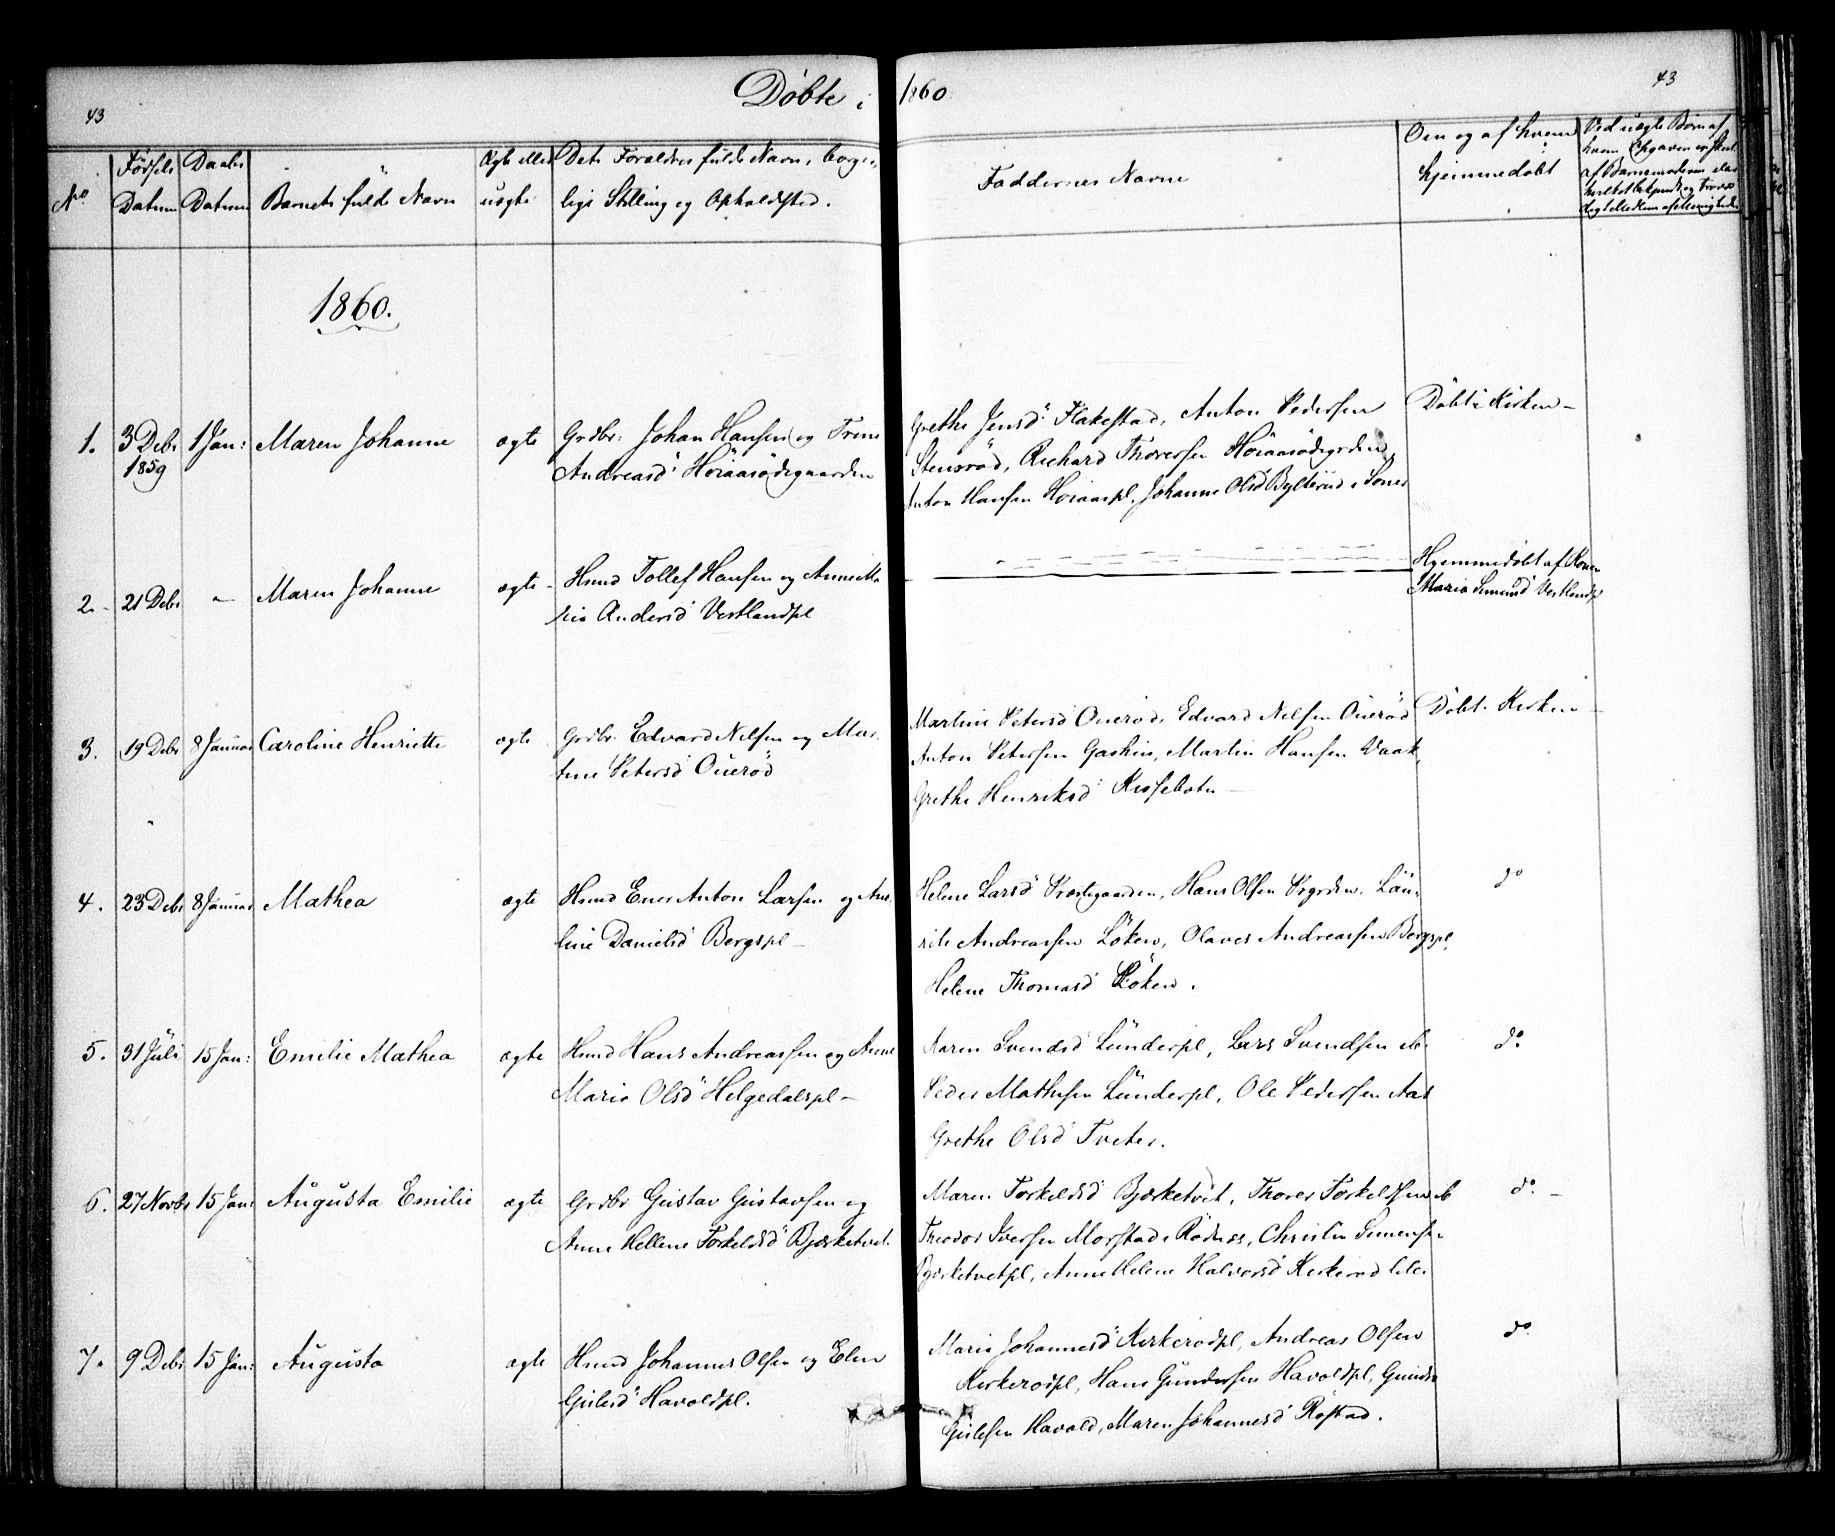 43
Döbte i 1860
43
No
Födsels Datum
Daabs Datum
Barnets fulde Navn
Ægte eller uægte
Dets Forældres fulde Navn, borger-
lige Stilling og Opholdsted.
Faddernes Navne
Om og af hvem
hjemmedöbt
Ved uægte Börn af
hvem Opgaven er skeet
1860.
1. 3 Debr 1859 1 Jan: Maren Johanne ægte
Grdbr: Johan Hansen og Trine
Andreasd: Höiaasödegaarden
Grethe Jensd: Flakestad, Anton Pedersen
Stensröd, Richard Thoresen Höiaasödegrden,
Anton Hansen Höiaaspl. Johanne Olsd
Döbt i Kirken –
2. 21 Debr – Maren Johanne ægte –
Hsmd Tollef Hansen og Anne Ma
ria Andersd Vestlandpl
Hjemmedöbt af Konen
Maria Simensd Vestlandpl
3. 19 Debr 8 Januar Caroline Henriette ægte
Grdbr. Edvard Nilsen og Mar-
tine Petersd Oueröd
Martine Petersd Ouerod, Edvard Nilsen Oueröd
Anton Petersen Gashus, Martin Hansen Vaak,
Grethe Henriksd Kisselbotn –
Döbt i Kirken –
4. 23 Debr 8 Januar Mathea ægte
Hsmd Ener Anton Larsen og An-
line Danielsd Bergspl –
Helene Larsd Præstegaarden, Hans Olsen Prgrden, Lau-
rits Andreassen Löken, Olaves Andreassen Bergspl,
Helene Thomasd Löken.
do
5. 31 Juli 15 Jan: Emilie Mathea ægte
Hsmd Hans Andreassen og Anne
Maria Olsd Helgedalspl –
Karen Svendsd Lunderpl, Lars Svendsen ib.
Peder Mathisen Lunderpl, Ole Pedersen Aas
Grethe Olsd Tveter.
do.
6. 27 Novbr 15 Jan: Augusta Emilie ægte
Grdbr Gustav Gustavsen og
Anne Hellene Torkeldsd Bjerketvet.
Maren Torkeldsd Bjerketvet, Thorer Torkeldsen ib
Theodor Iversen Morstad i Rödnes, Christen Simensen
Bjerketvetpl, Anne Helene Halvorsd Kirkeröd lille.
do. –
7. 9 Debr 15 Jan: Augusta ægte
Hsmd Johannes Olsen og Elen
Gulesd Havoldpl.
Maria Johannesd Kirkerodpl, Andreas Olsen
Kirkerodpl, Hans Gundersen Havoldpl, Gunder
Gulesen Havold, Maren Johannesd Röstad.
do.